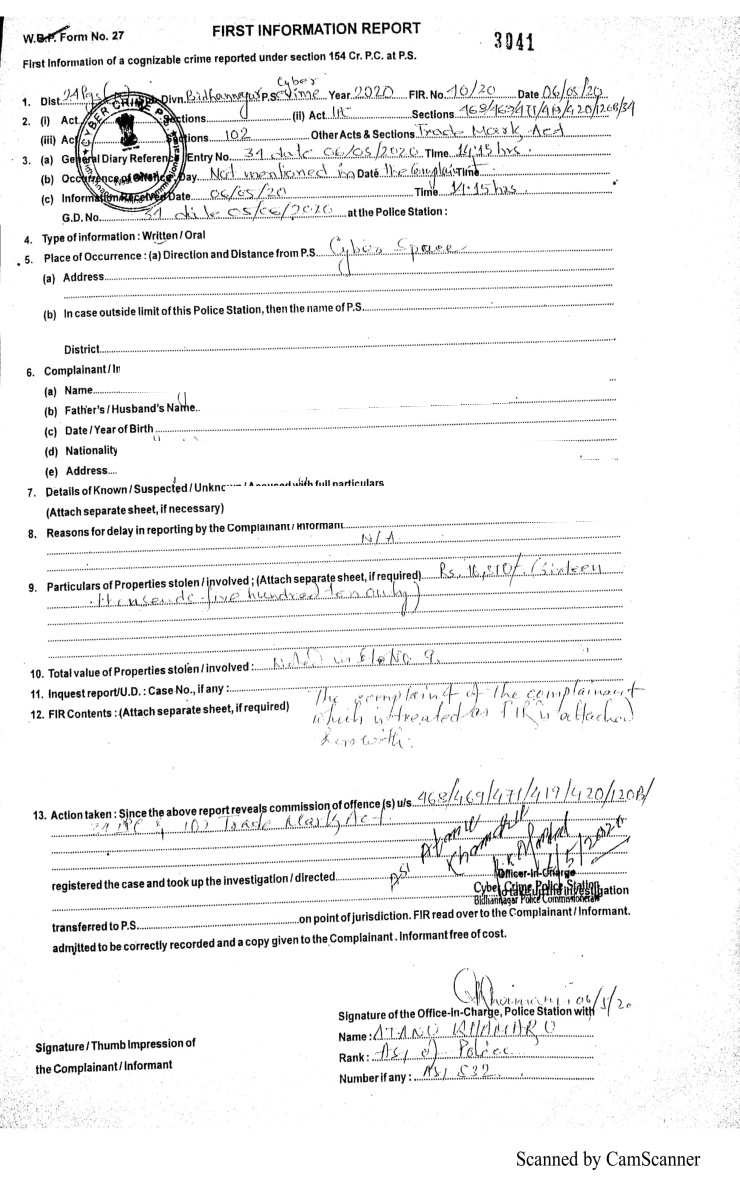 W.B.P. Form No. 27
FIRST INFORMATION REPORT
3041
First Information of a cognizable crime reported under section 154 Cr. P.C. at P.S.
1. Dist 24 Pgs (n) Divn. Bidhannagar P.S. Cyber Crime Year 2020 FIR. No. 10/20 Date 06/05/20
2. (i) Act Sections (ii) Act. IPC Sections 468/469/471/419/420/120B/34
(iii) Act Sections 102 Other Acts & Sections Trade Mark Act
3. (a) General Diary Reference Entry No. 31 date 06/05/2020 Time 14:15 hrs.
(b) Occurrence of Offence Day. Not mentioned in Date the Complaint Time
(c) Information Received Date 06/05/20 Time 14:15 hrs
G.D. No. 31 date 05/06/2020 at the Police Station :
4. Type of information : Written / Oral
5. Place of Occurrence : (a) Direction and Distance from P.S. Cyber Space
(a) Address
(b) In case outside limit of this Police Station, then the name of P.S.
District
6. Complainant / In
(a) Name
(b) Father's / Husband's Name
(c) Date / Year of Birth
(d) Nationality
(e) Address
7. Details of Known / Suspected / Unknown / Accused with full particulars
(Attach separate sheet, if necessary)
8. Reasons for delay in reporting by the Complainant / Informant
N/A
9. Particulars of Properties stolen / involved ; (Attach separate sheet, if required) Rs. 16,510/- (Sixteen
thousands five hundred ten only)
10. Total value of Properties stolen / involved : Noted in Clo No 9.
11. Inquest report/U.D. : Case No., if any :
12. FIR Contents : (Attach separate sheet, if required) The complaint of the complainant
which is treated as FIR is attached
herewith.
13. Action taken : Since the above report reveals commission of offence (s) u/s 468/469/471/419/420/120B/
34 IPC & 102 Trade Marks Act.
registered the case and took up the investigation / directed ASI Atanu Khamaru
to take up the investigation
Officer-in-Charge
Cyber Crime Police Station
Bidhannagar Police Commissionerate
6/5/2020
transferred to P.S. on point of jurisdiction. FIR read over to the Complainant / Informant.
admitted to be correctly recorded and a copy given to the Complainant . Informant free of cost.
06/5/20
Signature of the Office-in-Charge, Police Station with
Name : ATANU KHAMARU
Rank : ASI of Police
Number if any : ASI 532
Signature / Thumb Impression of
the Complainant / Informant
Scanned by CamScanner